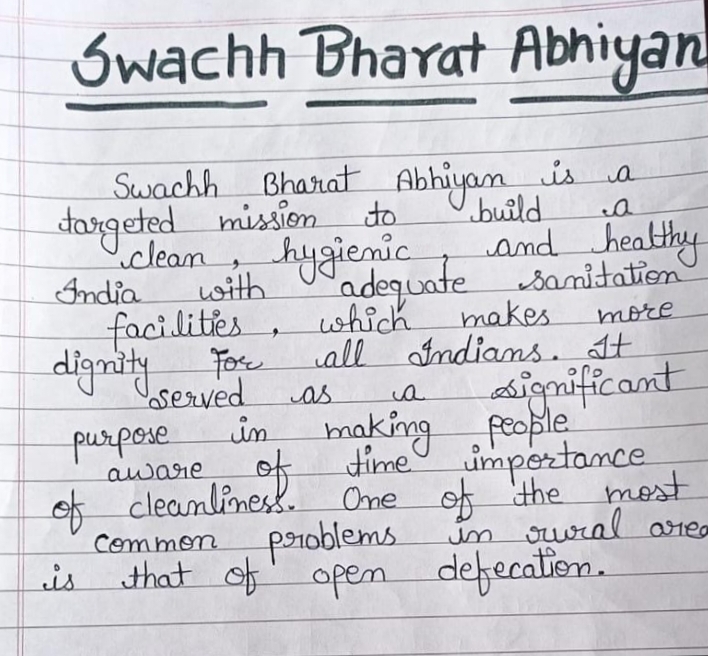 Swachh Bharat Abhiyan
Swachh Bharat Abhiyan is a
targeted mission to build a
clean, hygienic, and healthy
India with adequate sanitation
facilities, which makes more
dignity For all Indians. It
served as a significant
purpose in making people
aware of time importance
of cleanliness. One of the most
common problems in rural area
is that of open defecation.